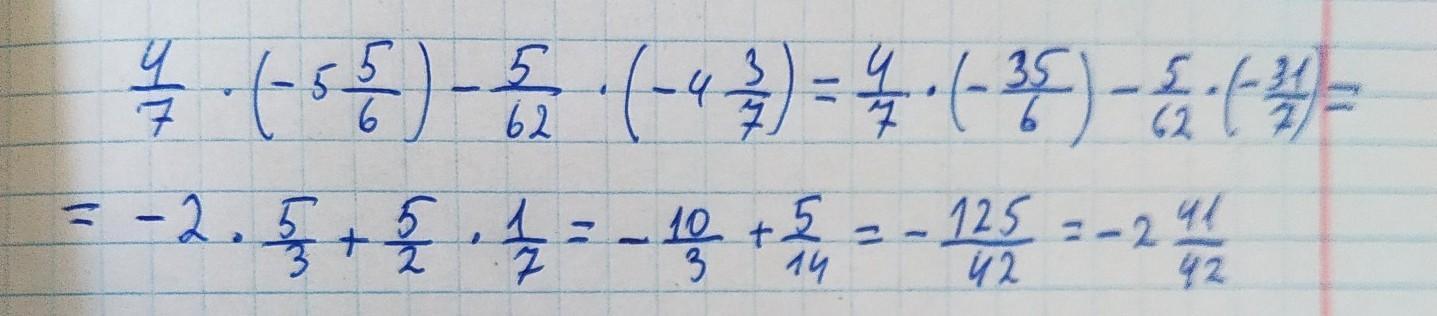 4/7 · (-5 5/6) - 5/62 · (-4 3/7) = 4/7 · (-35/6) - 5/62 · (-31/7) =
= -2 · 5/3 + 5/2 · 1/7 = -10/3 + 5/14 = -125/42 = -2 41/42